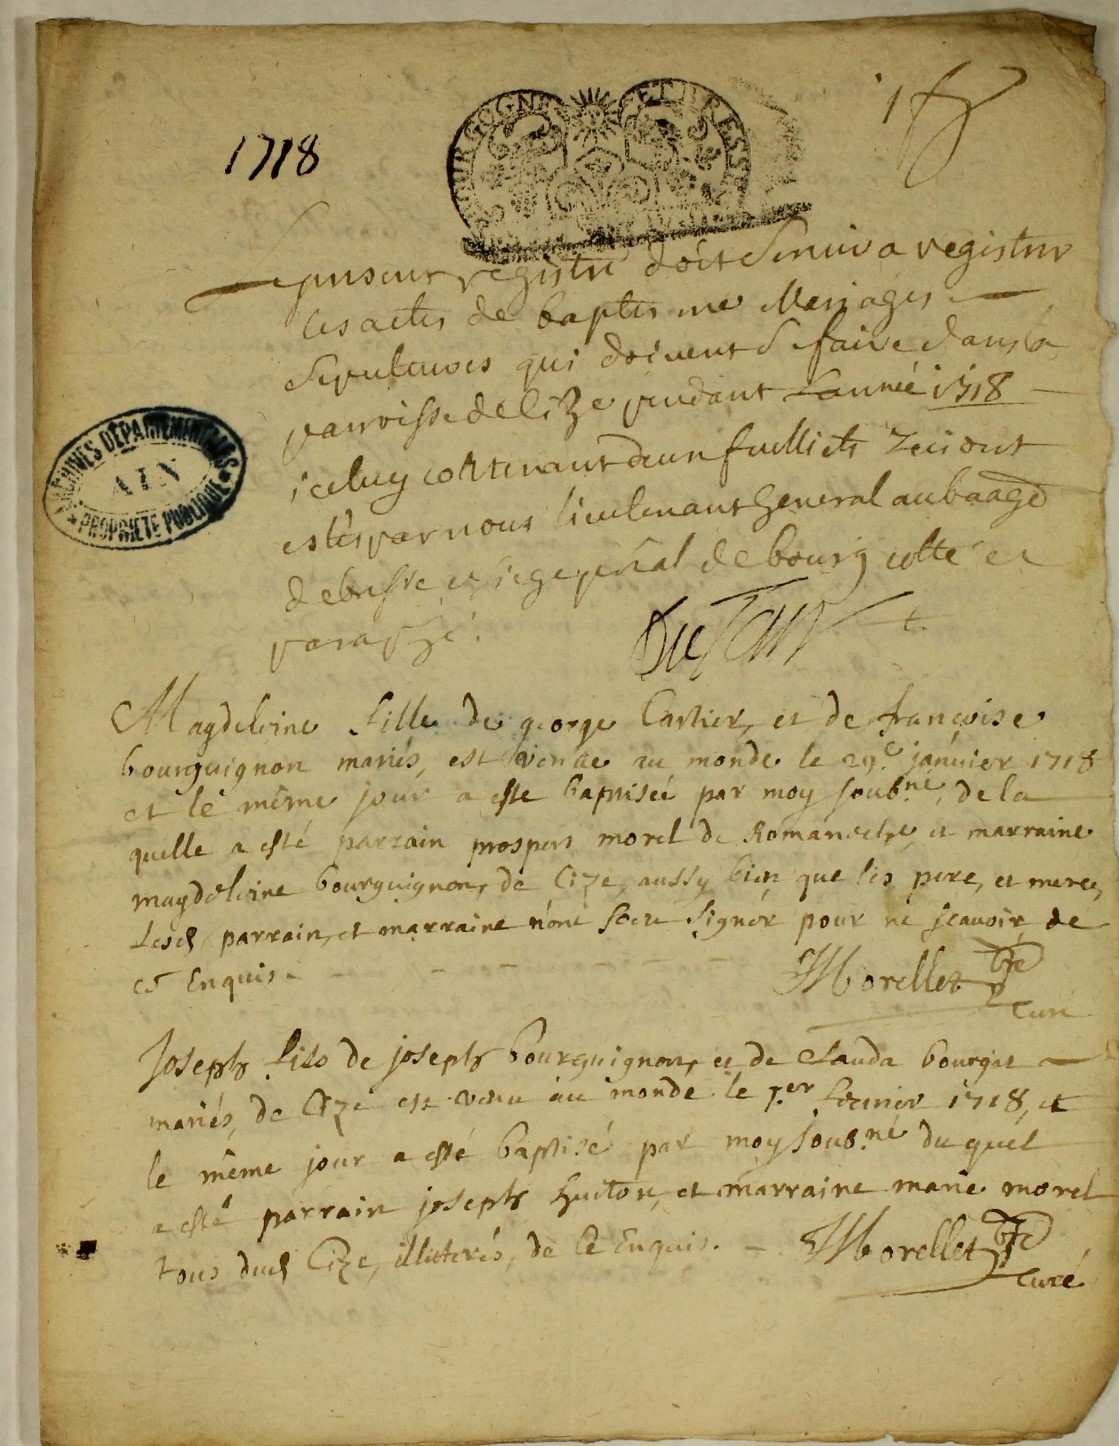 1718
BOURGOGNE ET BRESSE
Le present registre doit servir a registrer
les actes de baptesme Mariages
Sepulturés qui doivent se faire dans la
parroisse de Cize pendant L'année 1718
iceluy contenant deux fuilliets
estés par nous lieutenant General au baage
de bresse et siege p̃nal de bourg cotté et
paraphé.
ARCHIVES DÉPARTEMENTALES
AIN
PROPRIÉTÉ PUBLIQUE
Magdeleine fille de george Cartier, et de françoise
bourguignon mariés, est venue au monde le 29.e janvier 1718
et le même jour a esté baptisée par moy soub.né, de la
quelle a esté parrain prospers morel de Romaneche, et marraine
magdeleine bourguignon, de Cize, aussy bien que les pere, et mere,
Lesd parrain, et marraine n'ont sceu signér pour ne scavoir, de
ce Enquis.
Morellet pbr
Curé
Joseph fils de joseph bourguignon, et de Clauda bourget
mariés, de Cize est venu au monde le 1.er fevrier 1718, et
le même jour a esté baptisé par moy soub.né du quel
a esté parrain joseph Guiton, et marraine marie morel
tous dud Cize, illitterés, de Ce Enquis.
Morellet pbr
Curé